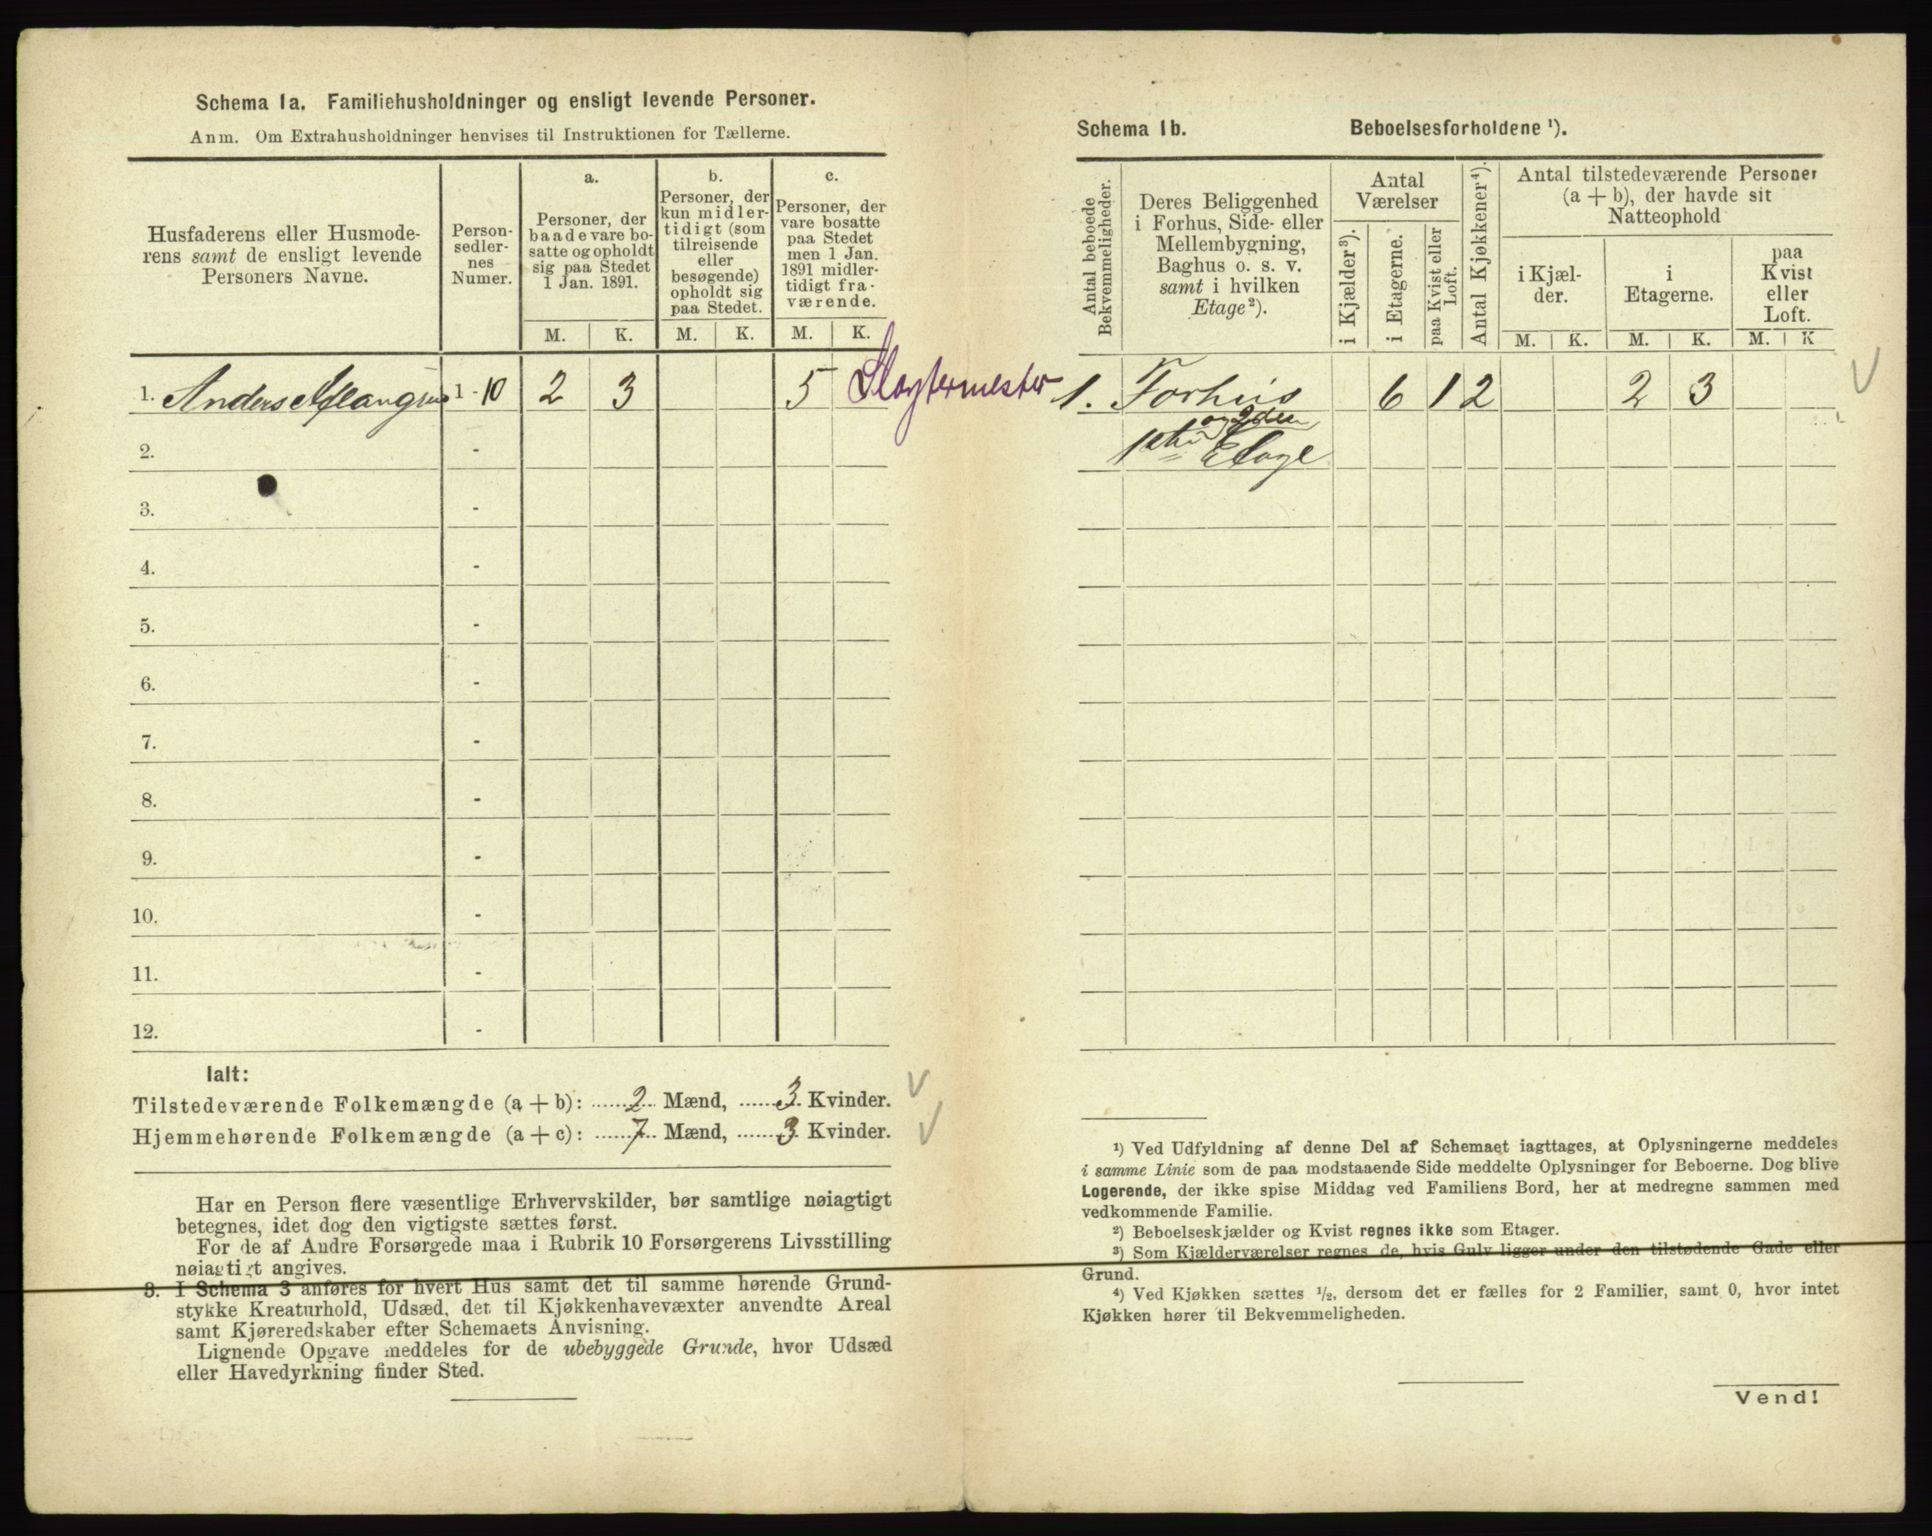 Schema 1a. Familiehusholdninger og ensligt levende Personer.
Anm. Om Extrahusholdninger henvises til Instruktionen for Tællerne.
Husfaderens eller Husmode-
rens samt de ensligt levende
Personers Navne.
Person-
sedler-
nes
Numer.
a.
Personer, der
baade vare bo-
satte og opholdt
sig paa Stedet
1 Jan. 1891.
b.
Personer, der
kun midler-
tidigt (som
tilreisende
eller
besøgende)
opholdt sig
paa Stedet.
c.
Personer, der
vare bosatte
paa Stedet
men 1 Jan.
1891 midler-
tidigt fra-
værende.
M. K. M. K. M. K.
1. Anders 1 - 10 2 3 5 Slagtermester
2. -
3. -
4. -
5. -
6. -
7. -
8. -
9. -
10. -
11. -
12. -
Ialt:
Tilstedeværende Folkemængde (a + b): 2 Mænd, 3 Kvinder.
Hjemmehørende Folkemængde (a + c): 7 Mænd, 3 Kvinder.
Har en Person flere væsentlige Erhvervskilder, bør samtlige nøiagtigt
betegnes, idet dog den vigtigste sættes først.
For de af Andre Forsørgede maa i Rubrik 10 Forsørgerens Livsstilling
nøiagtigt angives.
3. I Schema 3 anføres for hvert Hus samt det til samme hørende Grund-
stykke Kreaturhold, Udsæd, det til Kjøkkenhavevæxter anvendte Areal
samt Kjøreredskaber efter Schemaets Anvisning.
Lignende Opgave meddeles for de ubebyggede Grunde, hvor Udsæd
eller Havedyrkning finder Sted.
Schema 1b. Beboelsesforholdene ¹).
Antal beboede
Bekvemmeligheder.
Deres Beliggenhed
i Forhus, Side- eller
Mellembygning,
Baghus o. s. v.
samt i hvilken
Etage²).
Antal
Værelser
i Kjælder³).
i Etagerne.
paa Kvist eller
Loft.
Antal Kjøkkener⁴).
Antal tilstedeværende Personer
(a + b), der havde sit
Natteophold
i Kjæl-
der.
i
Etagerne.
paa
Kvist
eller
Loft.
M. K. M. K. M. K
1. Forhus 6 1 2 2 3
og 2den
1ste Etage
¹) Ved Udfyldning af denne Del af Schemaet iagttages, at Oplysningerne meddeles
i samme Linie som de paa modstaaende Side meddelte Oplysninger for Beboerne. Dog blive
Logerende, der ikke spise Middag ved Familiens Bord, her at medregne sammen med
vedkommende Familie.
²) Beboelseskjælder og Kvist regnes ikke som Etager.
³) Som Kjælderværelser regnes de, hvis Gulv ligger under den tilstødende Gade eller
Grund.
⁴) Ved Kjøkken sættes ½, dersom det er fælles for 2 Familier, samt 0, hvor intet
Kjøkken hører til Bekvemmeligheden.
Vend!